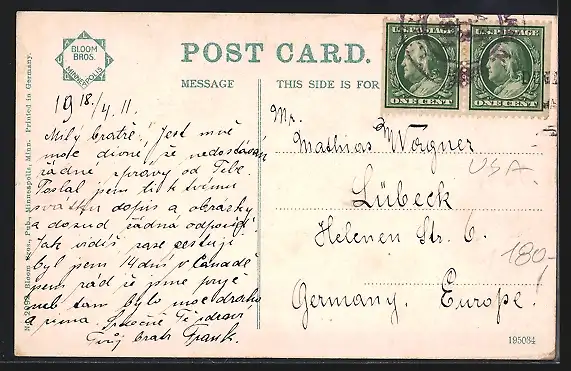 BLOOM BROS. MINNEAPOLIS
POST CARD.
MESSAGE
THIS SIDE IS FOR
U.S. POSTAGE
ONE CENT
U.S. POSTAGE
ONE CENT
No. 2093 Bloom Bros., Pub., Minneapolis, Minn. Printed in Germany.
19 18./4. 11.
Milý bratře! Jest mně
moc divné, že nedostávám
žádné zprávy od Tebe.
Poslal jsem ti k tvému
svátku dopis a obrázky
a dosud žádná odpověď.
Jak vidíš zase cestuji
byl jsem 14 dní v Canadě
jsem rád že jsme pryč
neb tam bylo moc draho
a zima. Srdečně Tě zdraví
Tvůj bratr Frank.
Mr.
Mathias Wagner
Lübeck
Helenen Str. 6.
Germany. Europe.
USA.
180-
195034